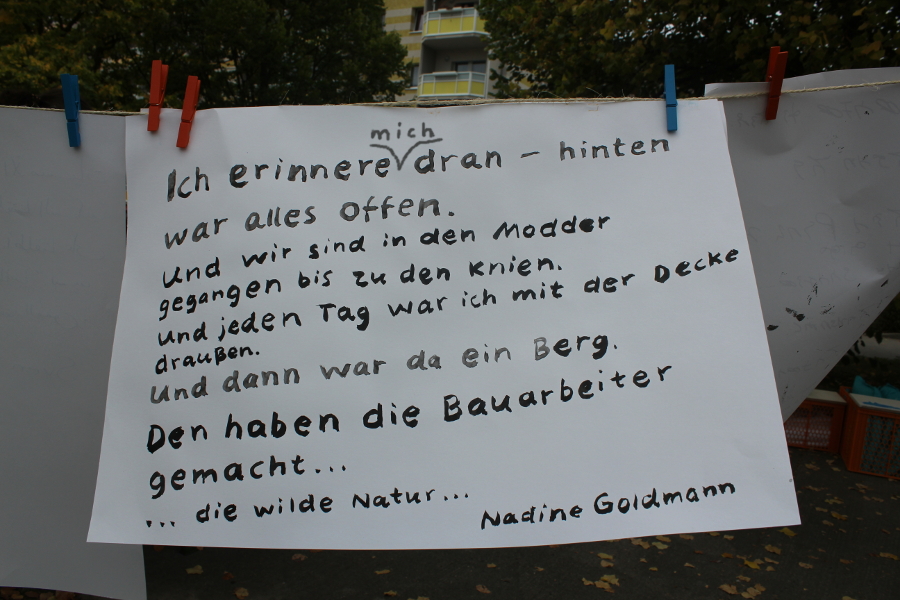 Ich erinnere mich dran – hinten
war alles offen.
Und wir sind in den Modder
gegangen bis zu den Knien.
Und jeden Tag war ich mit der Decke
draußen.
Und dann war da ein Berg.
Den haben die Bauarbeiter
gemacht...
... die wilde Natur...
Nadine Goldmann